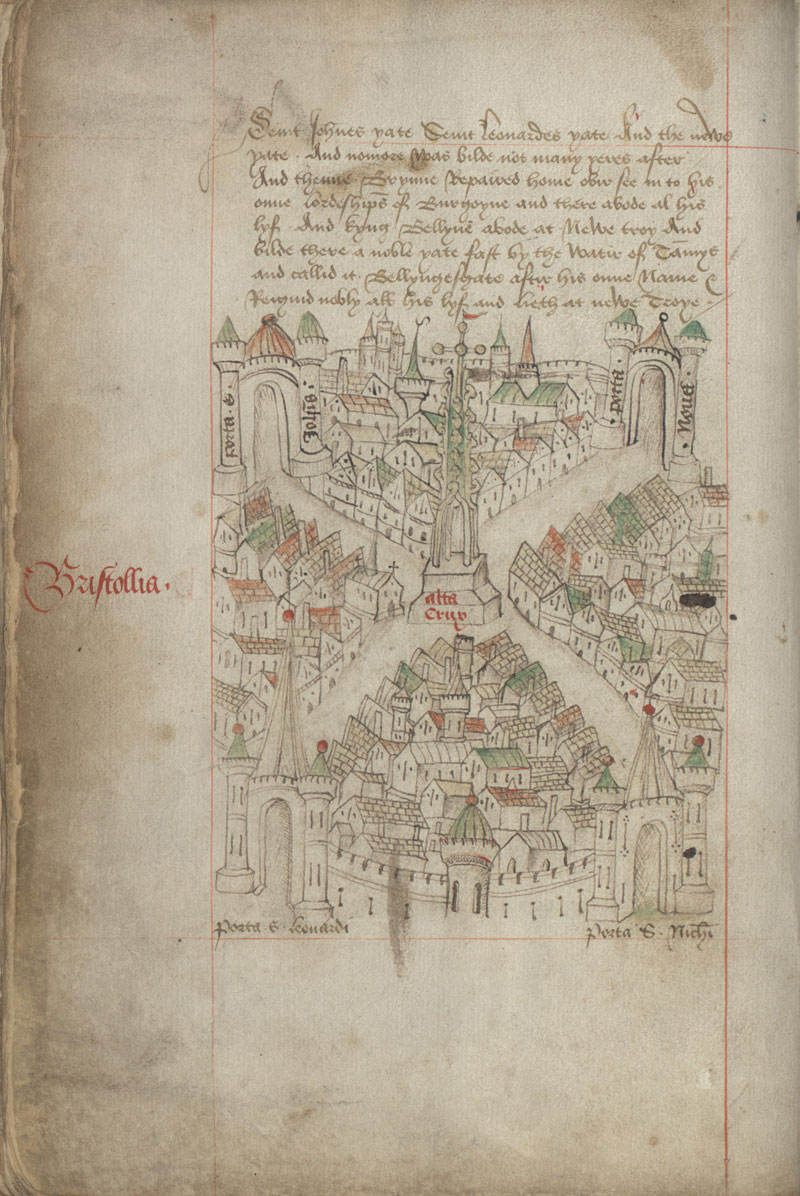 Seint Johnes yate Seint Leonardes yate. And the newe
yate. And nomore was bilde not many yeres after
And thenne Brynne Repaired home ovir see in to his
owne lordeships of Burgoyne and there abode al his
lyf. And kyng Bellyne abode at Newe troy And
bilde there a noble yate fast by the Watir of Tamys
and callid it. Bellyngesgate aftir his owne Name &
Reignid nobly all his lyf and lieth at newe Troye.
porta. S. Joh̄is:
porta. Noua.
Bristollia.
alta
Crux
porta S. Leonardi
porta S. Nich̄i